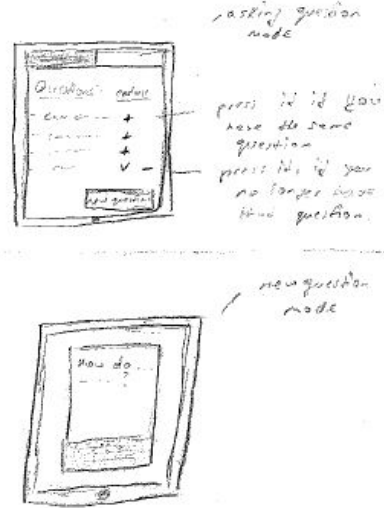 asking question
mode
Questions: endorse
+
press it if you
+
have the same
+
question
✓ -
press it, if you
no longer have
that question.
new question
new question
mode
How do ...
?